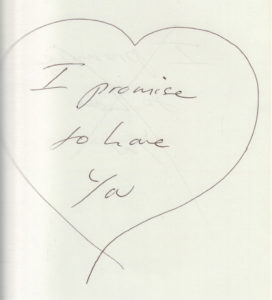 I promise
to love
You